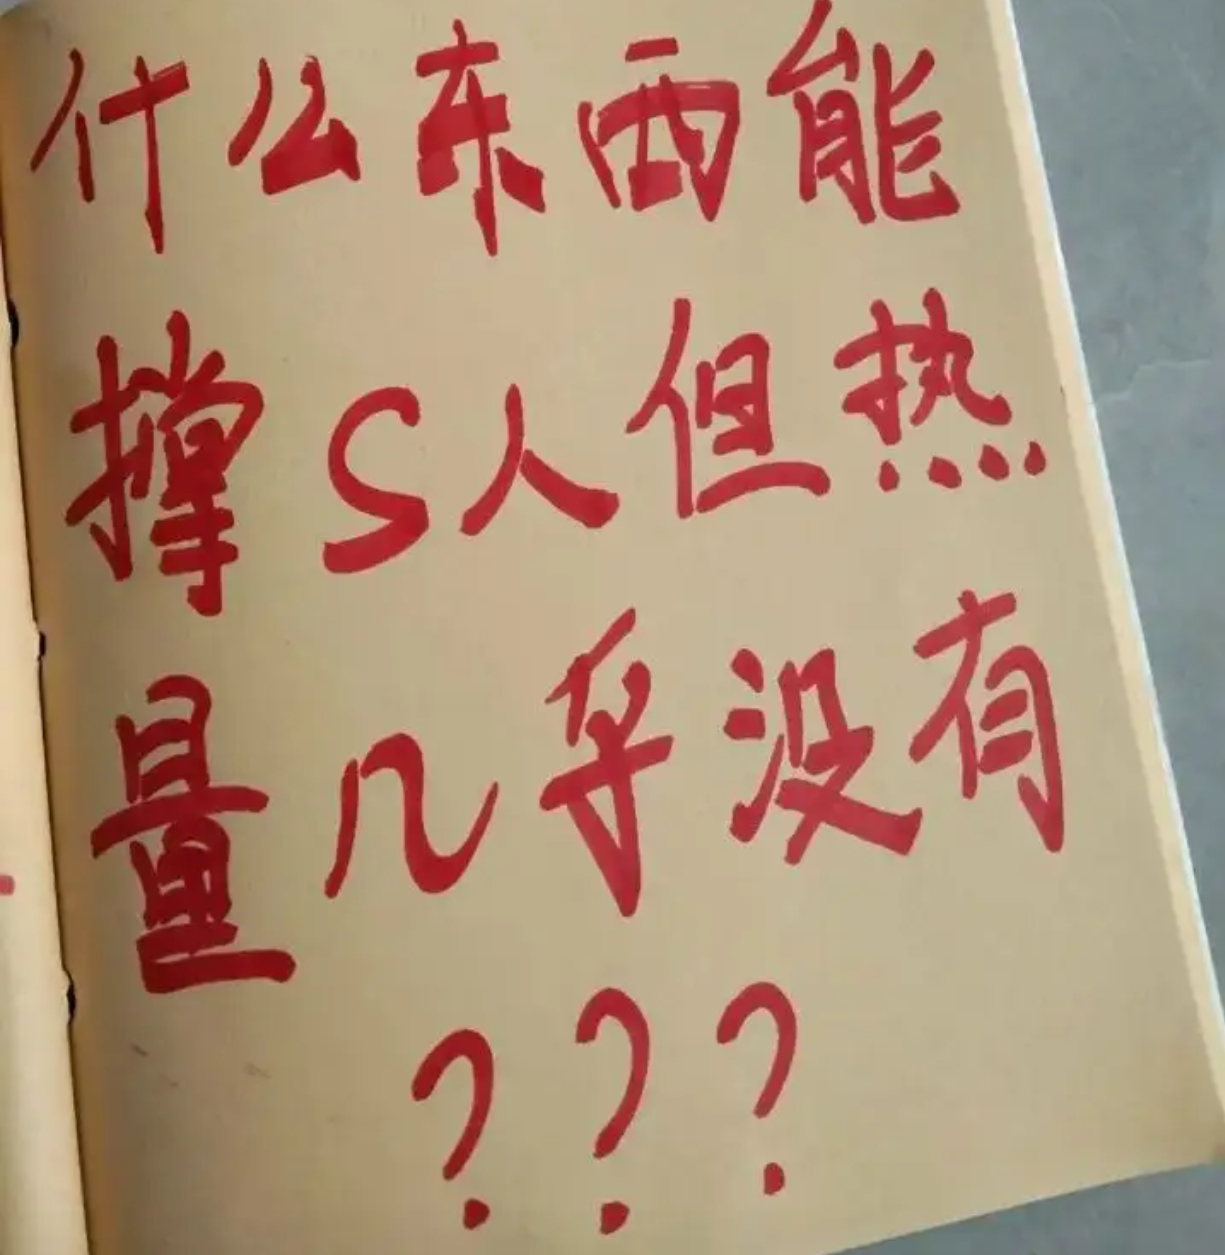 什么东西能
撑S人但热
量几乎没有
???